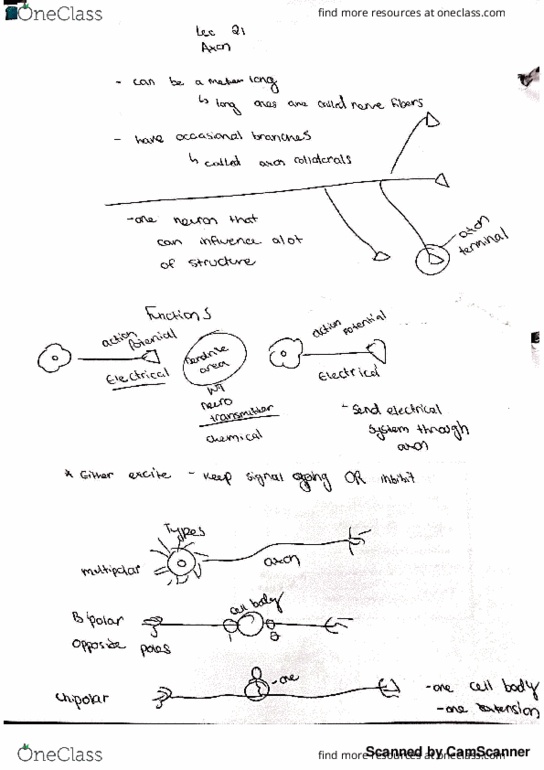 OneClass
find more resources at oneclass.com
Lec 21
Axon
- can be a meter long
↳ long ones are called nerve fibers
- have occasional branches
↳ called axon collaterals
- one neuron that
can influence alot
of structure
axon
terminal
Functions
action
potential
Electrical
Dendrite
area
neuro
transmitter
chemical
action potential
Electrical
- Send electrical
system through
axon
* Either excite - keep signal going OR inhibit
Types
multipolar
axon
Bipolar
opposite poles
cell body
1
2
Unipolar
- one
- one cell body
- one extension
OneClass
find more resources at oneclass.com
Scanned by CamScanner